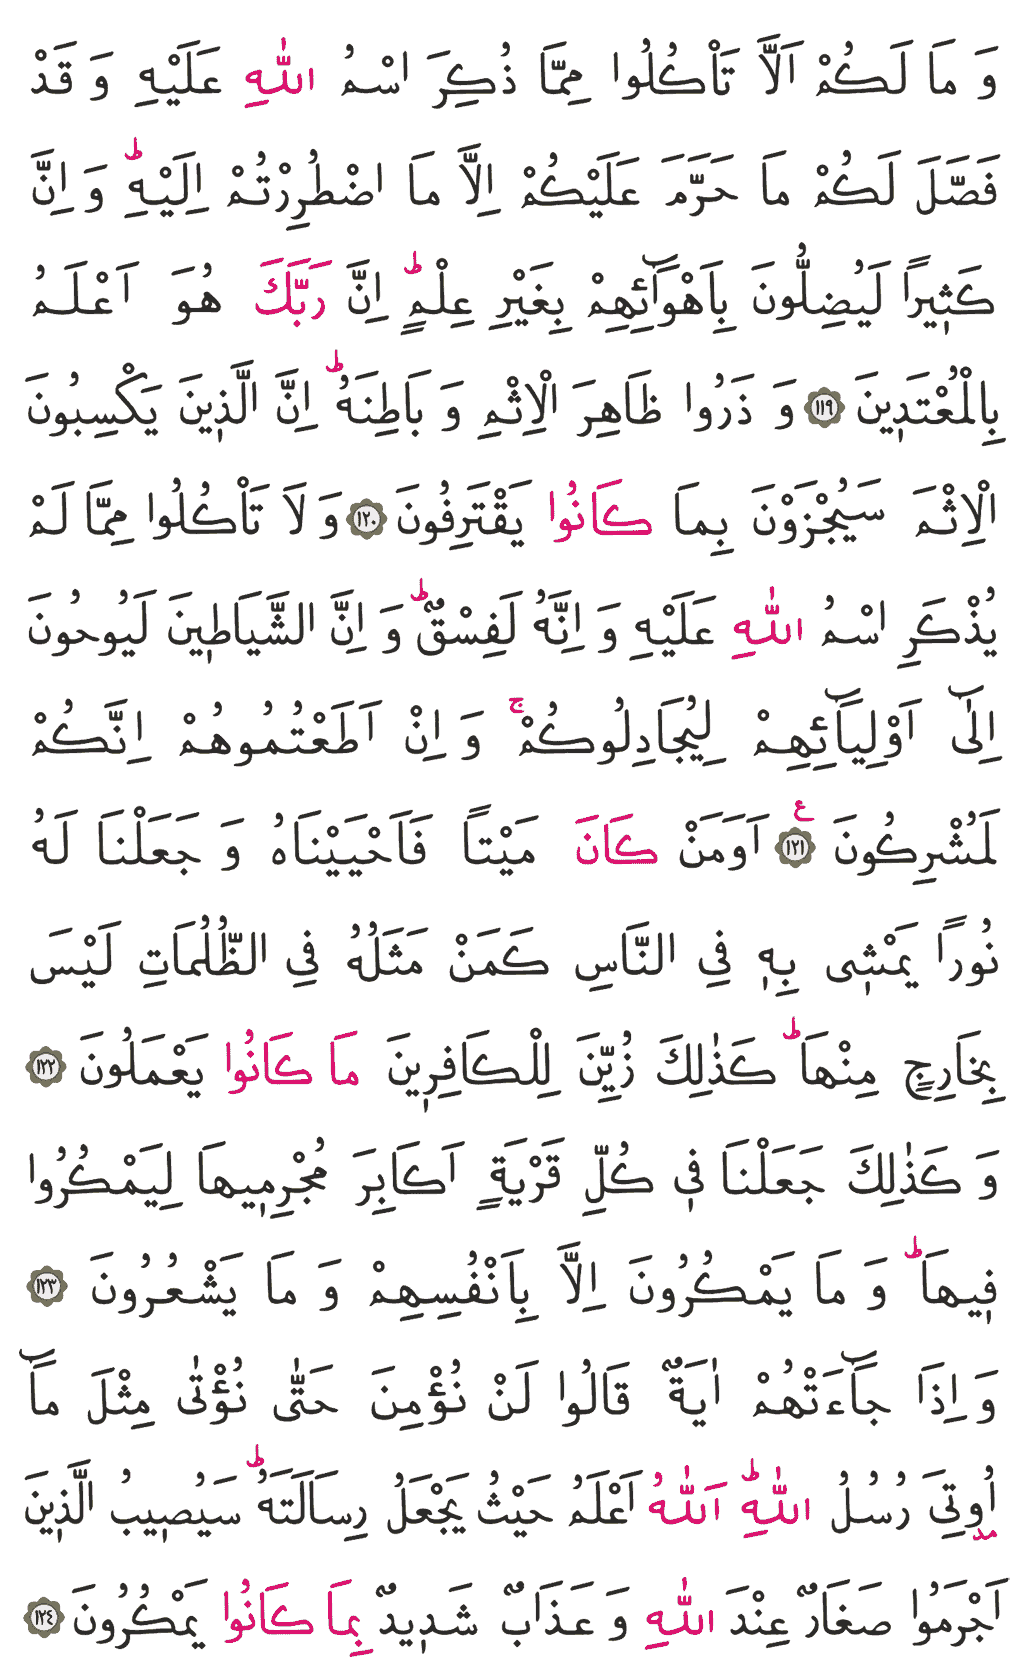 وَ مَا لَكُمْ اَلَّا تَأْكُلُوا مِمَّا ذُكِرَ اسْمُ اللّٰهِ عَلَيْهِ وَ قَدْ
فَصَّلَ لَكُمْ مَا حَرَّمَ عَلَيْكُمْ اِلَّا مَا اضْطُرِرْتُمْ اِلَيْهِ ؕ وَ اِنَّ
كَثٖيرًا لَيُضِلُّونَ بِاَهْوَٓائِهِمْ بِغَيْرِ عِلْمٍ ؕ اِنَّ رَبَّكَ هُوَ اَعْلَمُ
بِالْمُعْتَدٖينَ ﴿١١٩﴾ وَ ذَرُوا ظَاهِرَ الْاِثْمِ وَ بَاطِنَهُ ؕ اِنَّ الَّذٖينَ يَكْسِبُونَ
الْاِثْمَ سَيُجْزَوْنَ بِمَا كَانُوا يَقْتَرِفُونَ ﴿١٢٠﴾ وَ لَا تَأْكُلُوا مِمَّا لَمْ
يُذْكَرِ اسْمُ اللّٰهِ عَلَيْهِ وَ اِنَّهُ لَفِسْقٌ ؕ وَ اِنَّ الشَّيَاطٖينَ لَيُوحُونَ
اِلٰٓى اَوْلِيَٓائِهِمْ لِيُجَادِلُوكُمْ ۚ وَ اِنْ اَطَعْتُمُوهُمْ اِنَّكُمْ
لَمُشْرِكُونَ ﴿١٢١﴾ ع اَوَمَنْ كَانَ مَيْتًا فَاَحْيَيْنَاهُ وَ جَعَلْنَا لَهُ
نُورًا يَمْشٖى بِهٖ فِي النَّاسِ كَمَنْ مَثَلُهُ فِي الظُّلُمَاتِ لَيْسَ
بِخَارِجٍ مِنْهَا ؕ كَذٰلِكَ زُيِّنَ لِلْكَافِرٖينَ مَا كَانُوا يَعْمَلُونَ ﴿١٢٢﴾
وَ كَذٰلِكَ جَعَلْنَا فٖي كُلِّ قَرْيَةٍ اَكَابِرَ مُجْرِمٖيهَا لِيَمْكُرُوا
فٖيهَا ؕ وَ مَا يَمْكُرُونَ اِلَّا بِاَنْفُسِهِمْ وَ مَا يَشْعُرُونَ ﴿١٢٣﴾
وَ اِذَا جَٓاءَتْهُمْ اٰيَةٌ قَالُوا لَنْ نُؤْمِنَ حَتّٰى نُؤْتٰى مِثْلَ مَٓا
اُوتِيَ رُسُلُ اللّٰهِ ؕ اَللّٰهُ اَعْلَمُ حَيْثُ يَجْعَلُ رِسَالَتَهُ ؕ سَيُصٖيبُ الَّذٖينَ
مد
اَجْرَمُوا صَغَارٌ عِنْدَ اللّٰهِ وَ عَذَابٌ شَدٖيدٌ بِمَا كَانُوا يَمْكُرُونَ ﴿١٢٤﴾